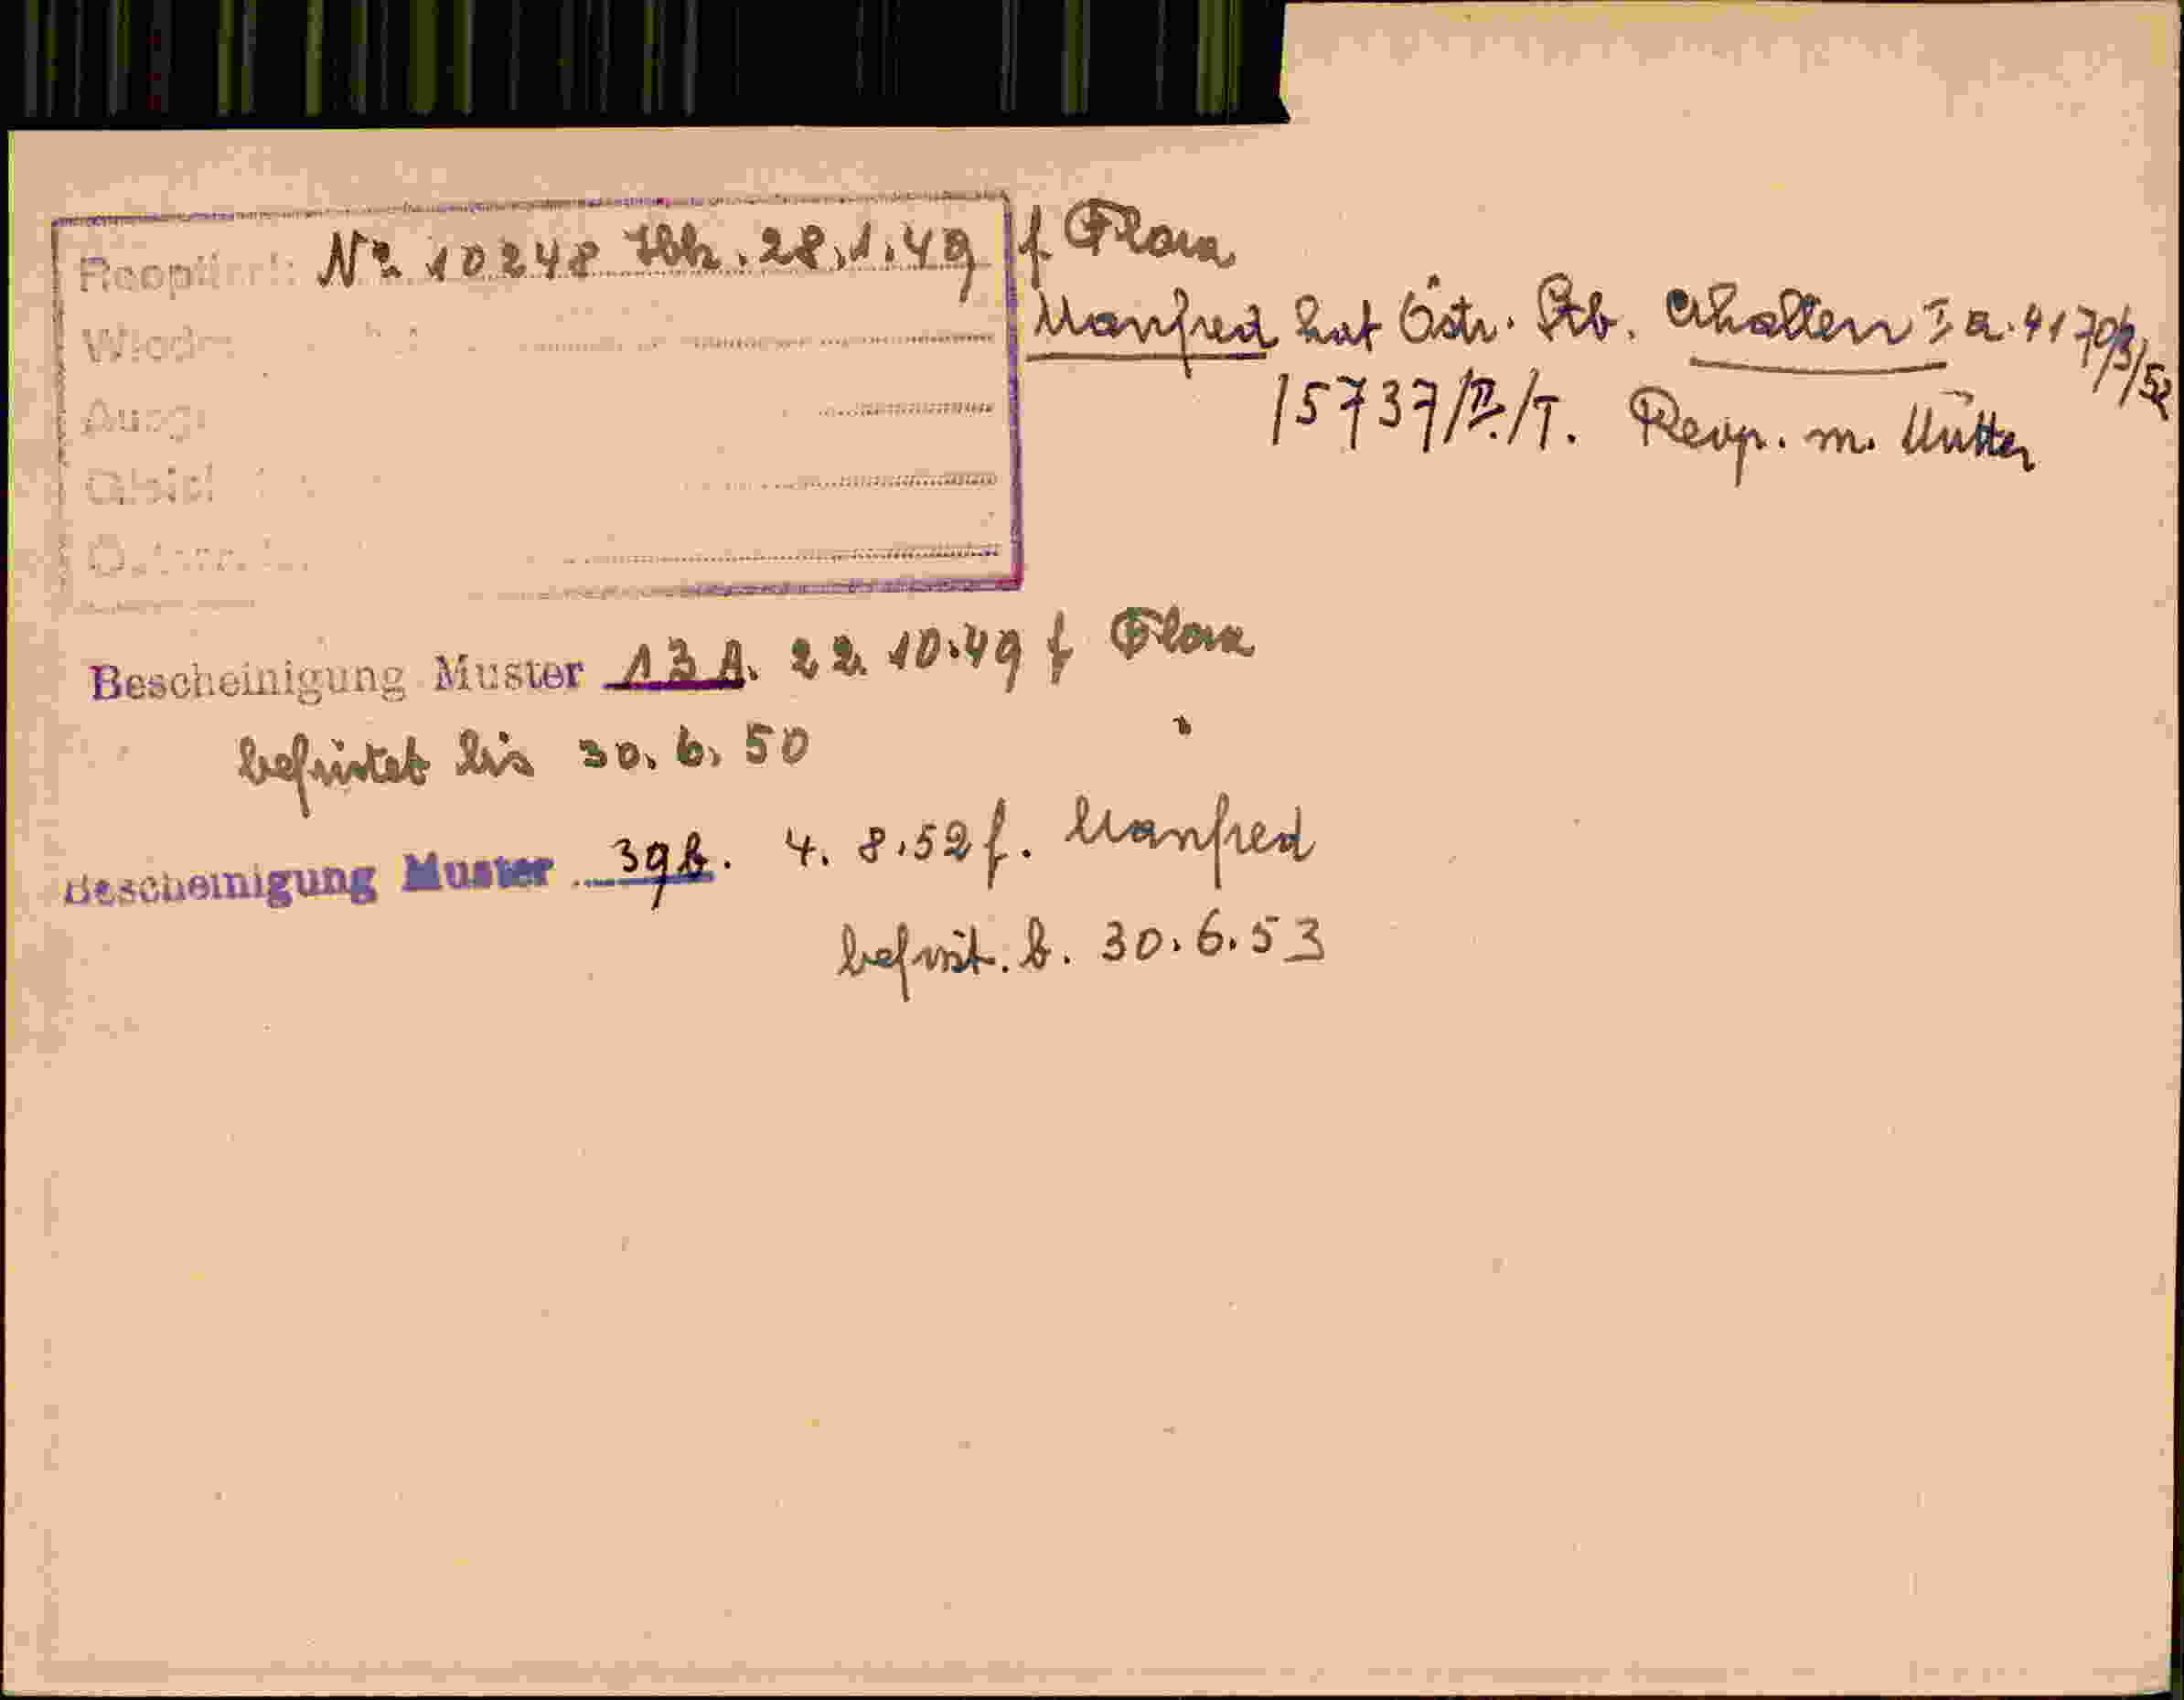 Reoptiert: No. 10248 Ibk. 28.1.49 f Flora
Manfred hat Östr. Stb. erhalten Ia. 4170/3/52
15737/II./T. Reop. m. Mutter
Bescheinigung Muster 13 A. 22.10.49 f Flora
befristet bis 30.6.50
Bescheinigung Muster 39b. 4.8.52 f. Manfred
befrist. b. 30.6.53